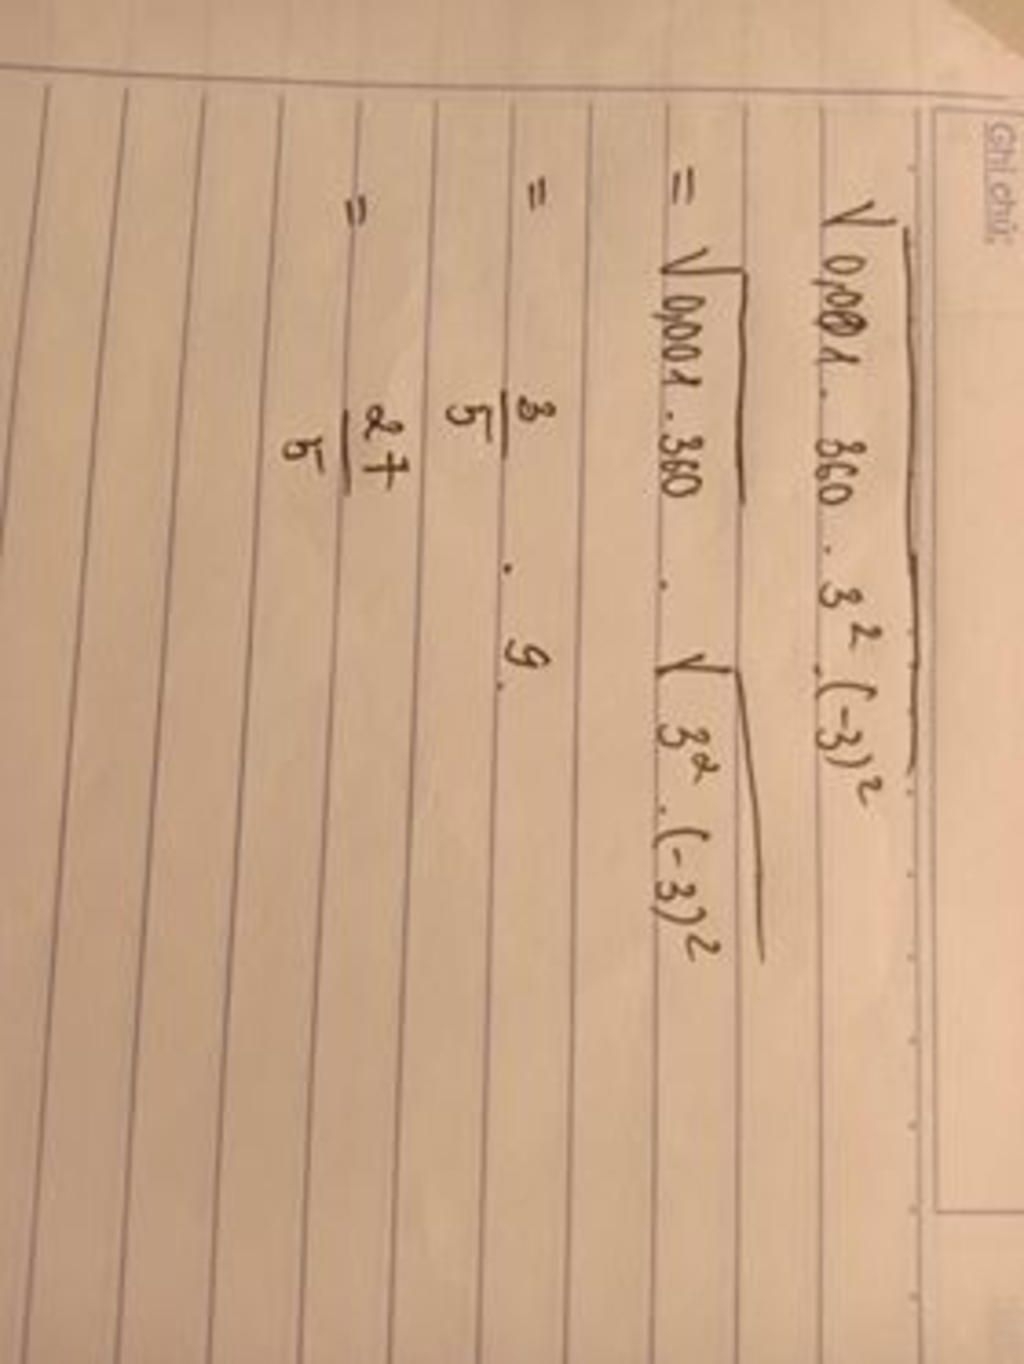 Ghi chú:
√0,001 . 360 . 3² . (-3)²
= √0,001 . 360 . √3² . (-3)²
= 3/5 . 9
= 27/5